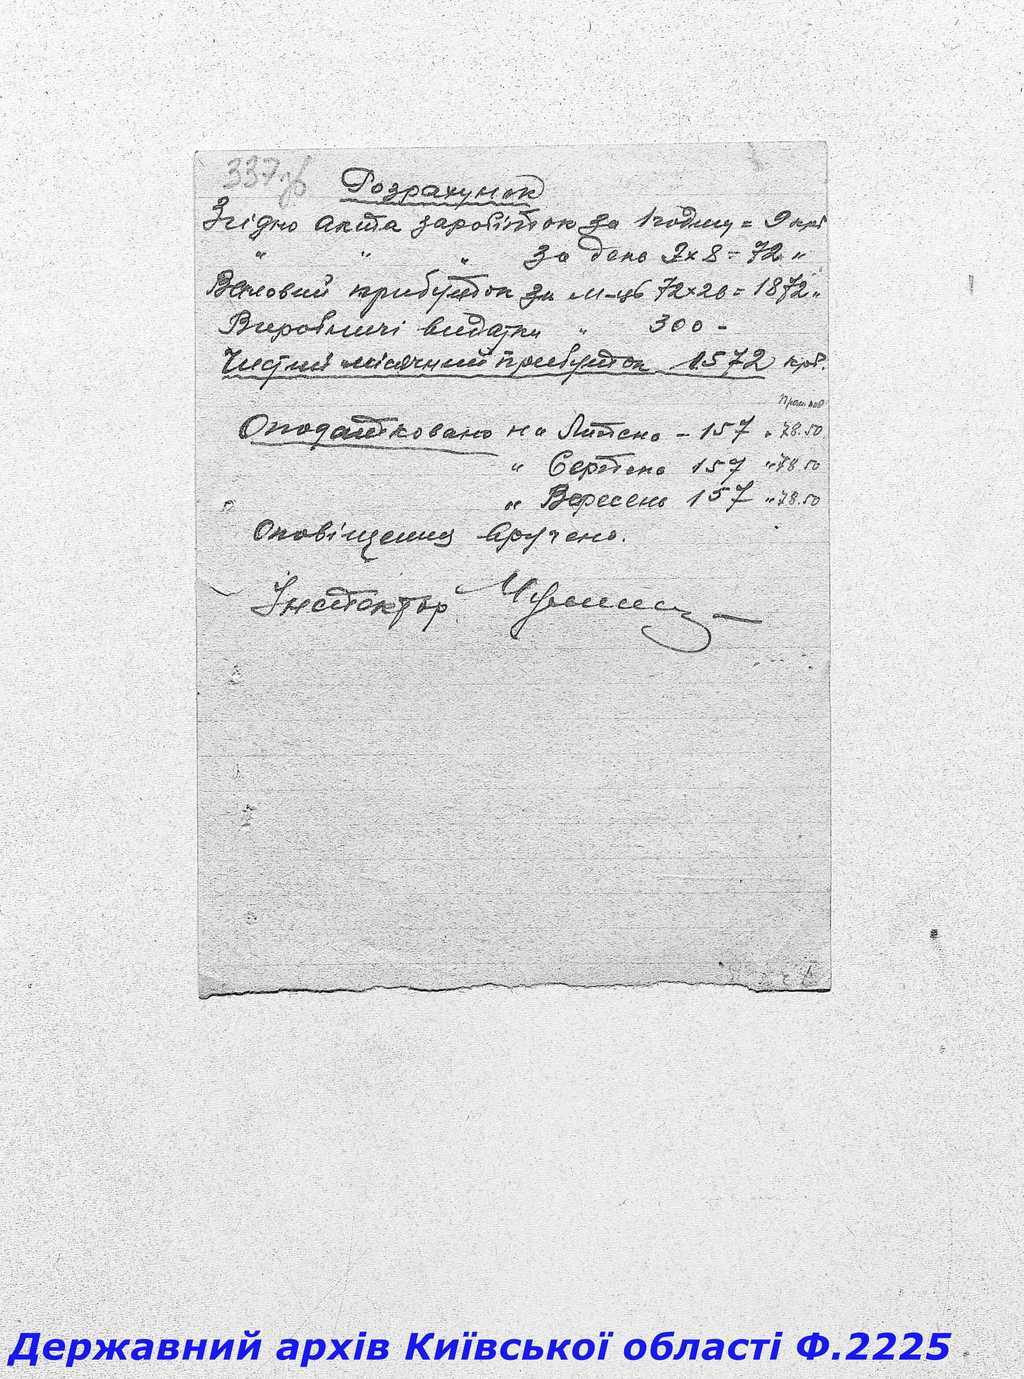 337зв
Розрахунок
Згідно акта заробіток за 1 годину = 9 крб
" " " за день 9х8 = 72 "
Валовий прибуток за м-ць 72х26 = 1872 "
Виробничі видатки " 300 -
Чистий місячний прибуток 1572 крб.
Оподатковано на Липень - 157 " 78.50
" Серпень 157 " 78.50
" Вересень 157 " 78.50
Оповіщення вручено.
Інспектор
Державний архів Київської області Ф.2225